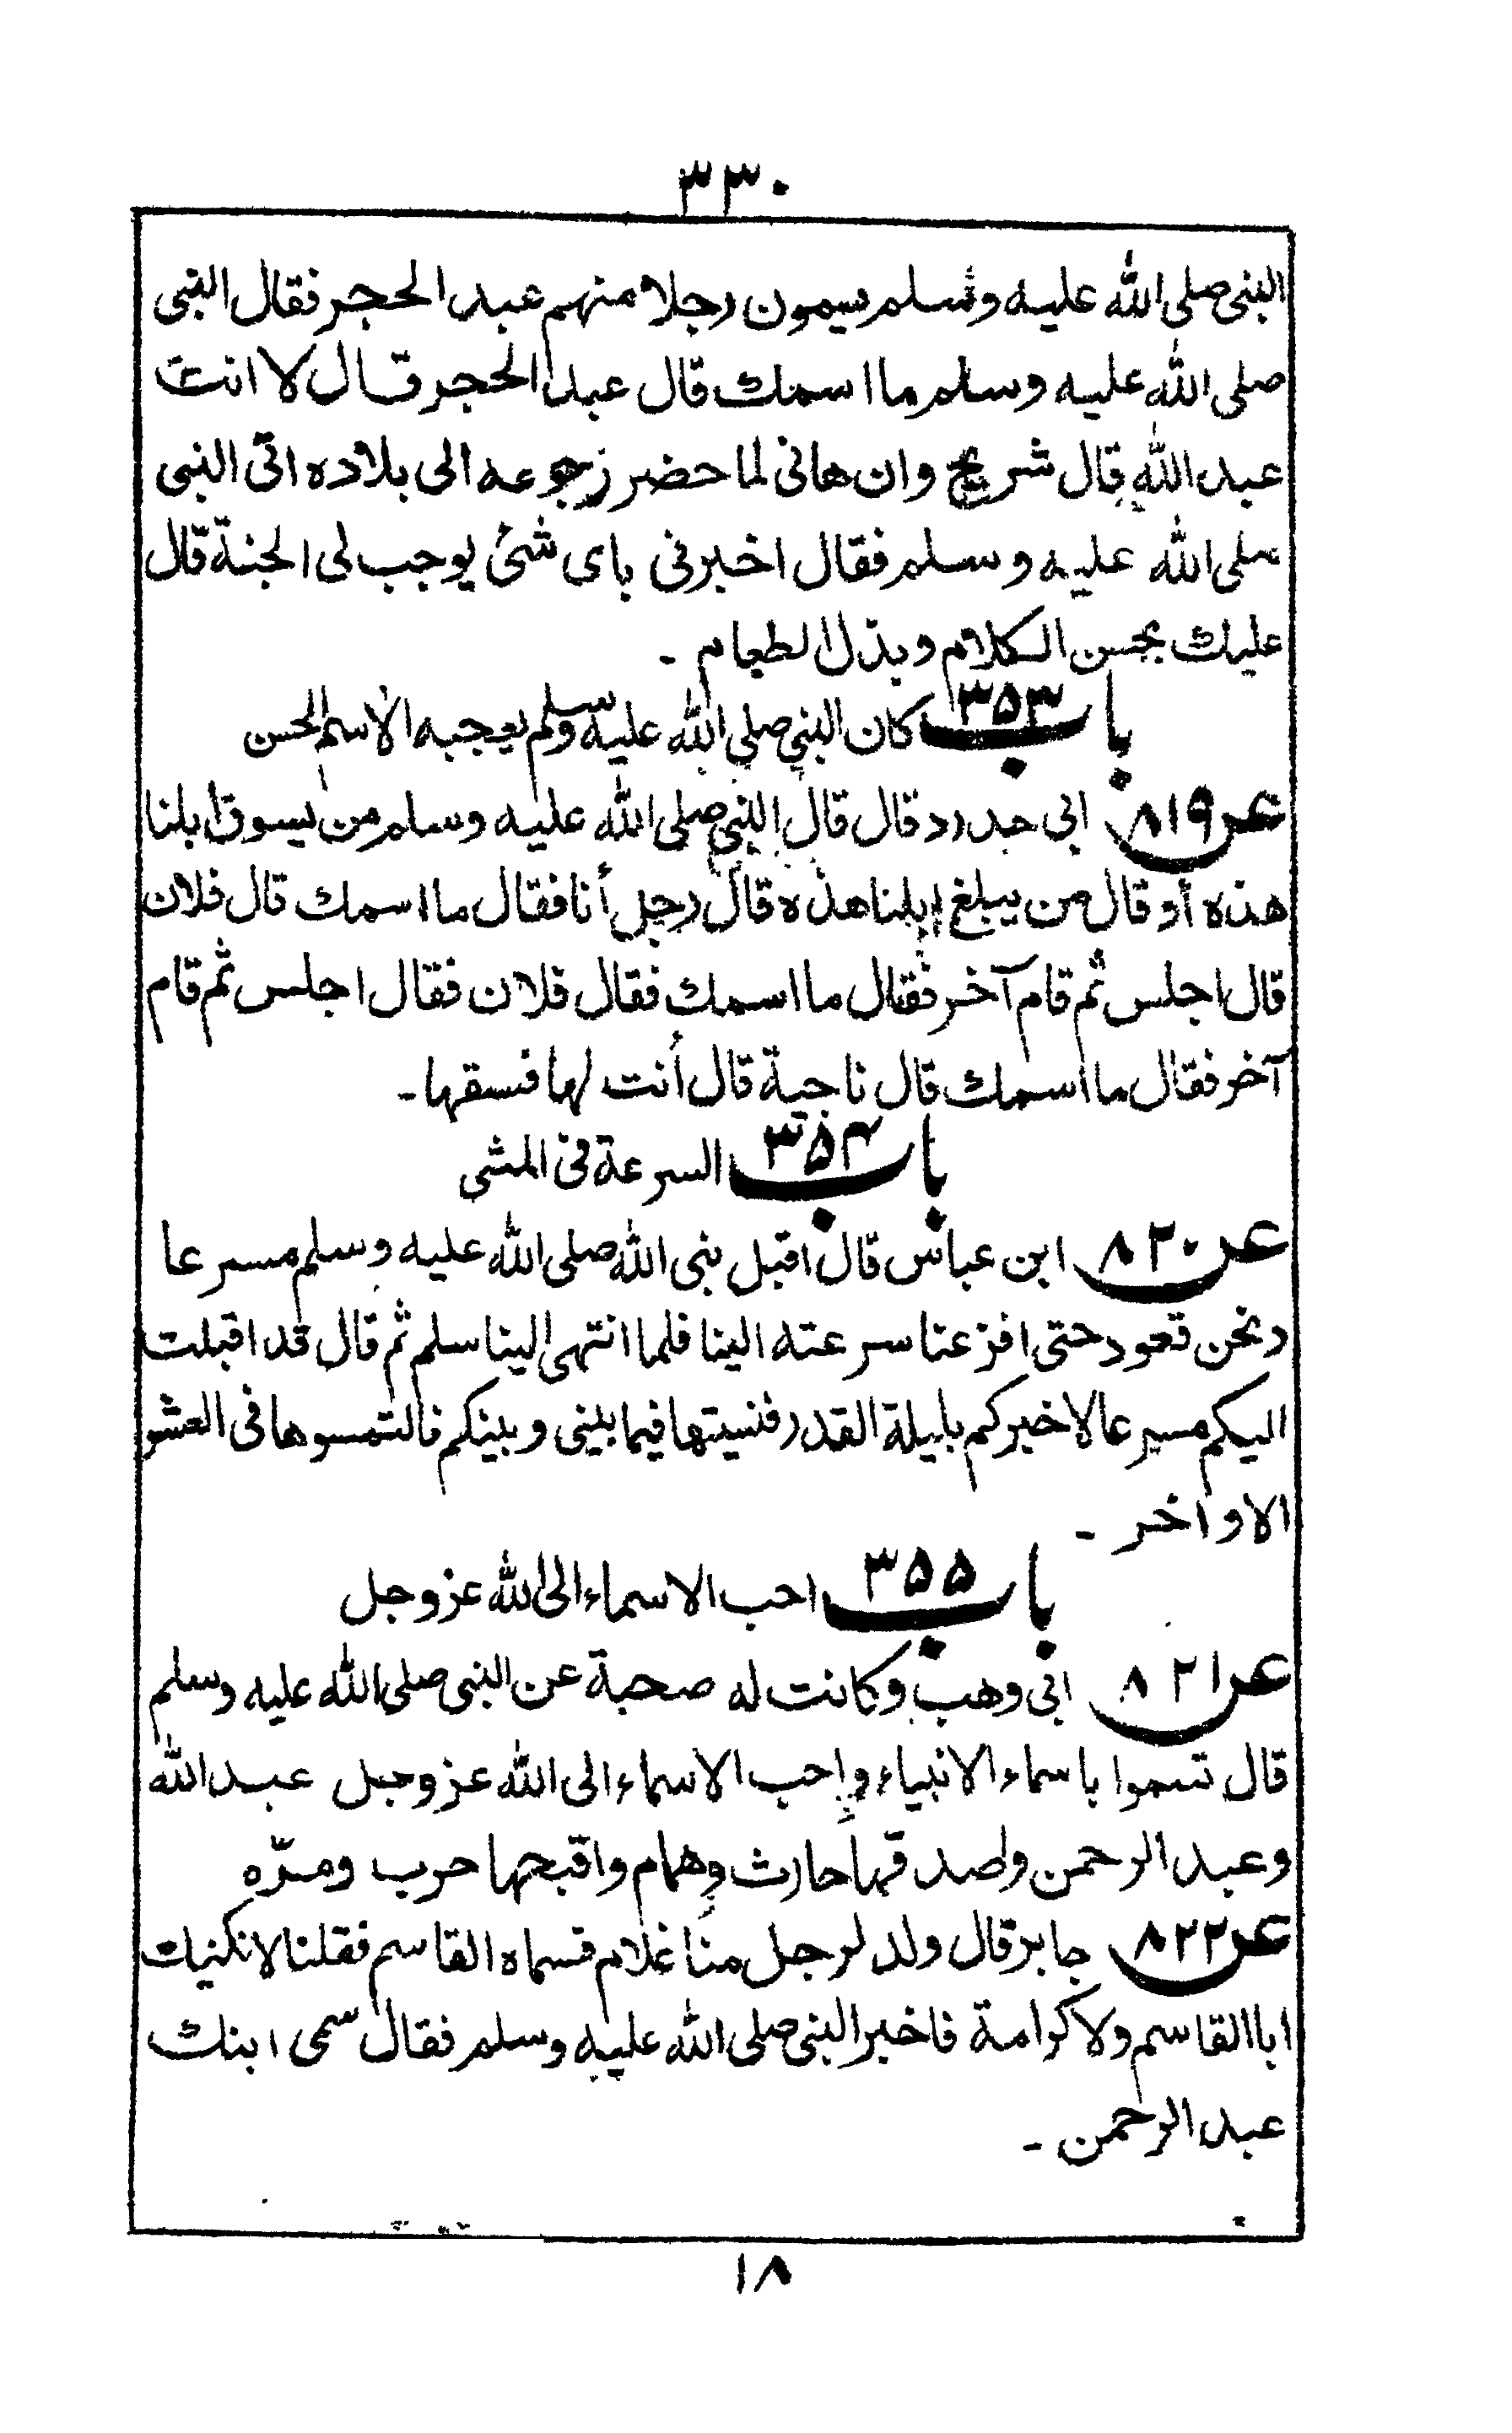 ٣٣٠
النبی صلی الله علیه وسلم یسمون رجلا منهم عبد الحجر فقال النبی
صلی الله علیه وسلم ما اسمك قال عبد الحجر قال لا انت
عبد الله قال شریح وان هانی لما حضر رجوعه الی بلاده اتی النبی
صلی الله علیه وسلم فقال اخبرنی بای شئ یوجب لی الجنة قال
علیك بحسن الکلام وبذل الطعام ۔
باب ٣٥٣ کان النبی صلی الله علیه وسلم یعجبه الاسم الحسن
عن ٨١٩ ابی حدرد قال قال النبی صلی الله علیه وسلم من یسوق ابلنا
هذه أو قال من یبلغ إبلنا هذه قال رجل أنا فقال ما اسمك قال فلان
قال اجلس ثم قام آخر فقال ما اسمك فقال فلان فقال اجلس ثم قام
آخر فقال ما اسمك قال ناجیة قال أنت لها فسقها ۔
باب ٣٥٤ السرعة فی المشی
عن ٨٢٠ ابن عباس قال اقبل نبی الله صلی الله علیه وسلم مسرعا
ونحن قعود حتی افزعنا سرعته الینا فلما انتهی الینا سلم ثم قال قد اقبلت
الیکم مسرعا لاخبرکم بلیلة القدر فنسیتها فیما بینی وبینکم فالتمسوها فی العشر
الاواخر ۔
باب ٣٥٥ احب الاسماء الی الله عز وجل
عن ٨٢١ ابی وهب وکانت له صحبة عن النبی صلی الله علیه وسلم
قال تسموا باسماء الانبیاء واحب الاسماء الی الله عز وجل عبد الله
وعبد الرحمن واصدقها حارث وهمام واقبحها حرب ومرّه
عن ٨٢٢ جابر قال ولد لرجل منا غلام فسماه القاسم فقلنا لانکنیك
ابا القاسم ولا کرامة فاخبر النبی صلی الله علیه وسلم فقال سمی ابنك
عبد الرحمن ۔
١٨